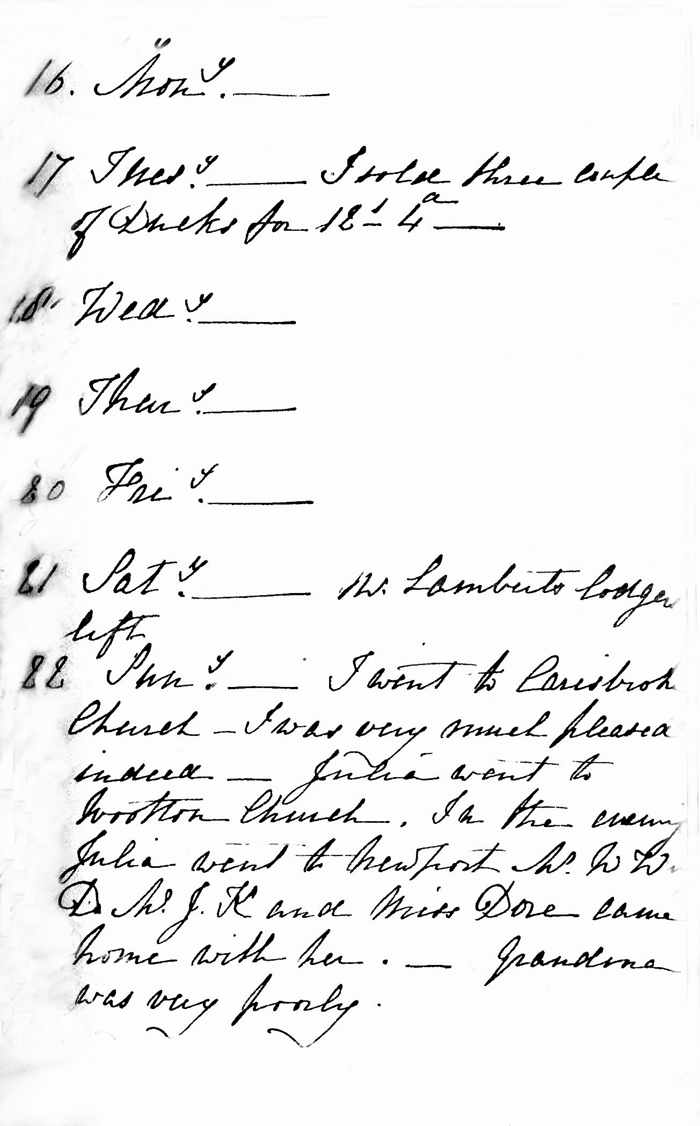 16. Mon.y ———
17 Tues.y ——— I sold three couple
of Ducks for 12s – 4d ———
18 Wed.y ———
19 Thur.y ———
20 Fri.y ———
21 Sat.y ——— Mr. Lamberts lodger
left
22 Sun.y —— I went to Carisbrok
Church – I was very much pleased
indeed — Julia went to
Wootton Church. In the evening
Julia went to Newport Mr. W W
D. Mr. J. K and Miss Dore came
home with her. — Grandma
was very poorly.